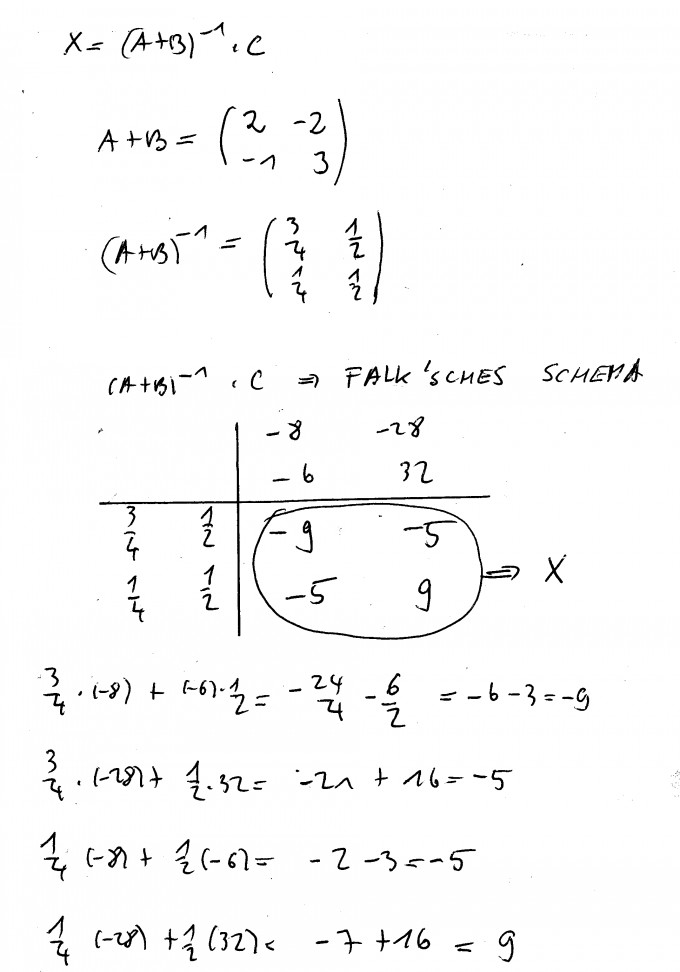 X = (A+B)⁻¹ · C
A+B = ( 2 -2
-1 3 )
(A+B)⁻¹ = ( 3/4 1/2
1/4 1/2 )
(A+B)⁻¹ · C ⇒ FALK'SCHES SCHEMA
-8 -28
-6 32
3/4 1/2 -9 -5
1/4 1/2 -5 9 ⇒ X
3/4 · (-8) + (-6) · 1/2 = - 24/4 - 6/2 = -6 -3 = -9
3/4 · (-28) + 1/2 · 32 = -21 + 16 = -5
1/4 (-8) + 1/2 (-6) = -2 -3 = -5
1/4 (-28) + 1/2 (32) = -7 +16 = 9